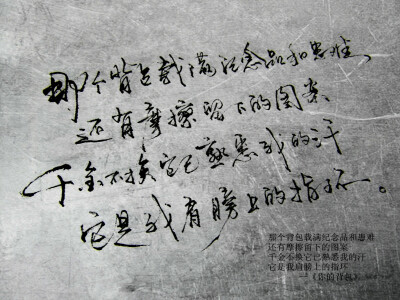 那个背包载满纪念品和患难、
还有摩擦留下的图案、
千金不换它已熟悉我的汗
它是我肩膀上的指环。
那个背包载满纪念品和患难
还有摩擦留下的图案
千金不换它已熟悉我的汗
它是我肩膀上的指环
—《你的背包》